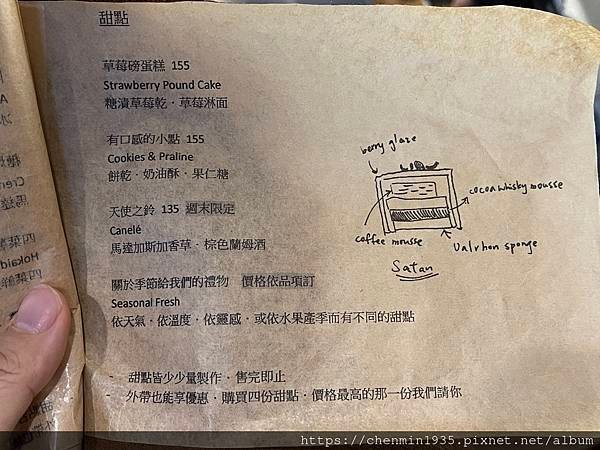 甜點
草莓磅蛋糕 155
Strawberry Pound Cake
糖漬草莓乾．草莓淋面
有口感的小點 155
Cookies & Praline
餅乾．奶油酥．果仁糖
天使之鈴 135 週末限定
Canelé
馬達加斯加香草．棕色蘭姆酒
關於季節給我們的禮物 價格依品項訂
Seasonal Fresh
依天氣．依溫度．依靈感．或依水果產季而有不同的甜點
- 甜點皆少少量製作．售完即止
- 外帶也能享優惠．購買四份甜點．價格最高的那一份我們請你
berry glaze
cocoa whisky mousse
coffee mousse
Valrhon sponge
Satan
https://chenmin1935.pixnet.net/album